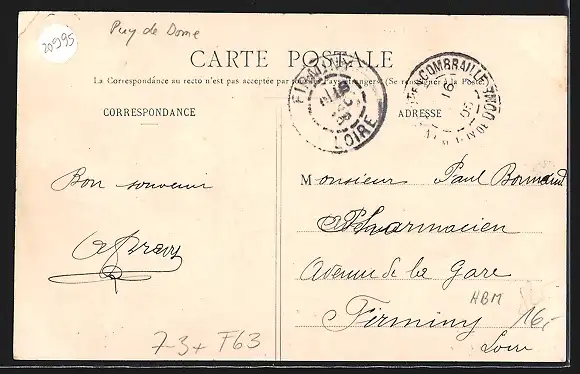 Puy de Dome
20995
CARTE POSTALE
La Correspondance au recto n'est pas acceptée par tous les Pays étrangers (Se renseigner à la Poste)
CORRESPONDANCE
ADRESSE
FIRMINY
LOIRE
COMBRAILLE
16
05
Bon souvenir
Monsieur Paul Bormand
Pharmacien
Avenue de la Gare
Firminy
Loire
HBM
16,-
73+ F63